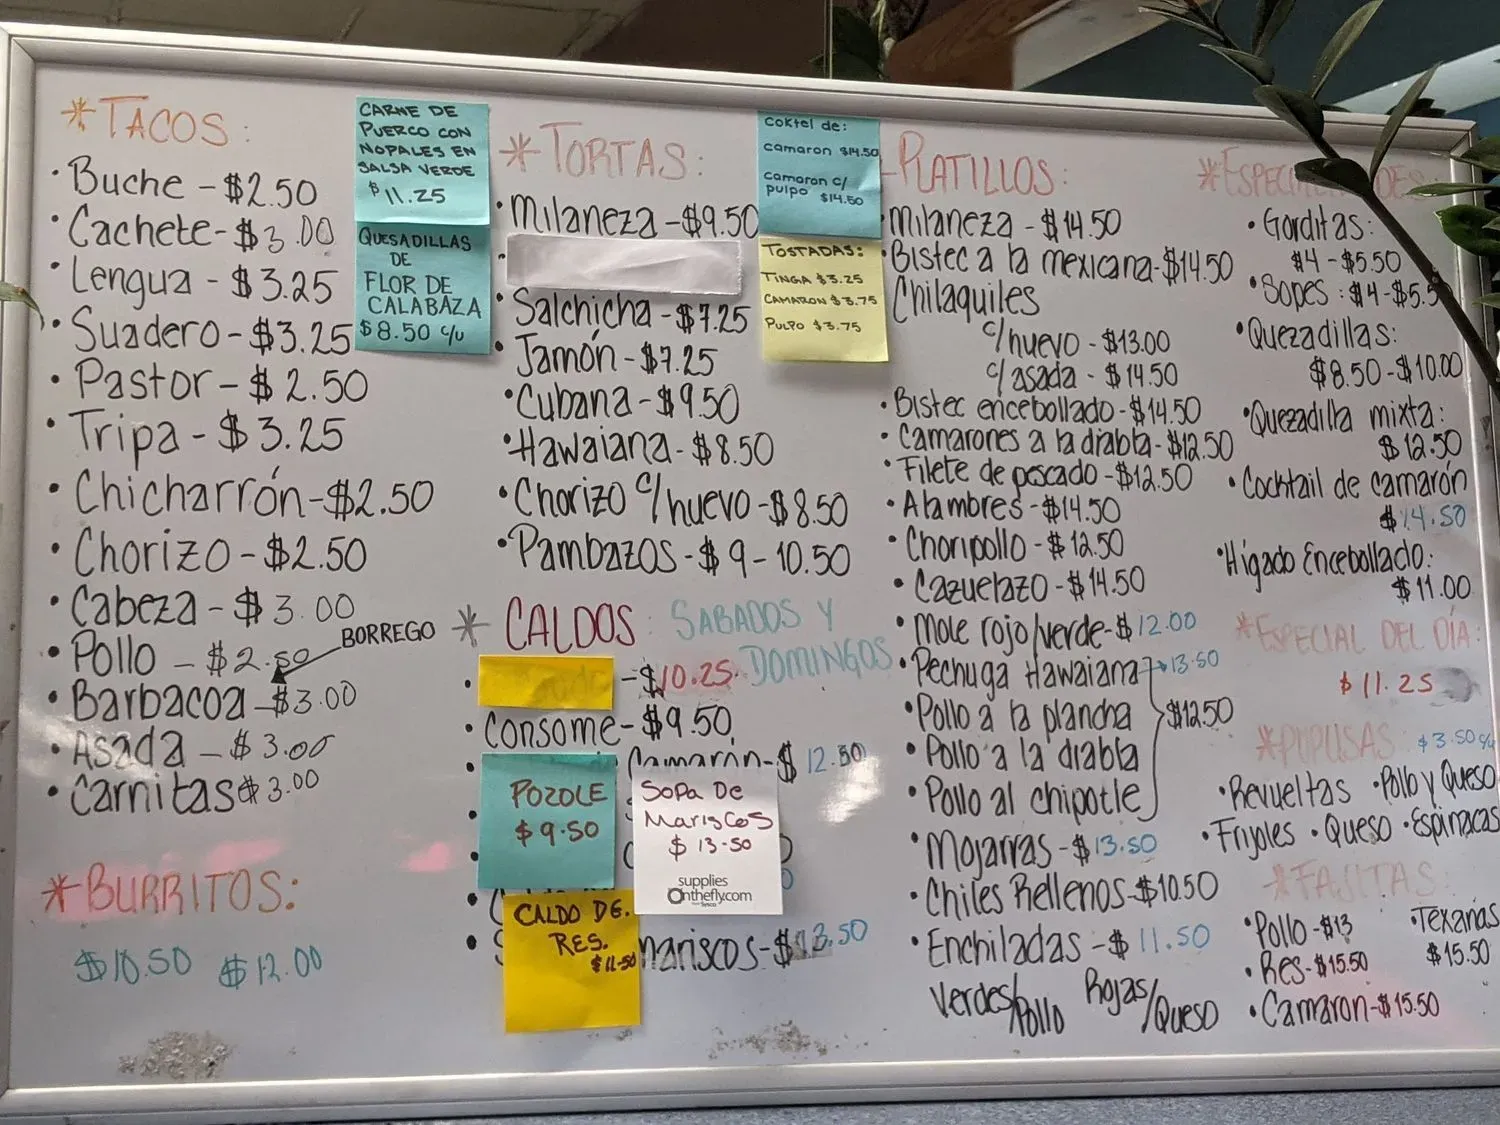 *TACOS:
• Buche - $2.50
• Cachete - $3.00
• Lengua - $3.25
• Suadero - $3.25
• Pastor - $2.50
• Tripa - $3.25
• Chicharrón - $2.50
• Chorizo - $2.50
• Cabeza - $3.00
• Pollo - $2.50
BORREGO
• Barbacoa - $3.00
• Asada - $3.00
• Carnitas $3.00
*BURRITOS:
$10.50 $12.00
CARNE DE
PUERCO CON
NOPALES EN
SALSA VERDE
$11.25
QUESADILLAS
DE
FLOR DE
CALABAZA
$8.50 c/u
*TORTAS:
• Milaneza - $9.50
• Salchicha - $7.25
• Jamón - $7.25
• Cubana - $9.50
• Hawaiana - $8.50
• Chorizo c/huevo - $8.50
• Pambazos - $9 - 10.50
* CALDOS: SABADOS Y
DOMINGOS
- $10.25
• Consome - $9.50
Camarón - $12.50
POZOLE
$9.50
SOPA DE
MARISCOS
$13.50
supplies
Onthefly.com
CALDO DE.
RES.
$11.50
mariscos - $13.50
Coktel de:
camaron $14.50
camaron c/
pulpo $14.50
TOSTADAS:
TINGA $3.25
CAMARON $3.75
PULPO $3.75
PLATILLOS:
• Milaneza - $14.50
• Bistec a la mexicana - $14.50
Chilaquiles
c/huevo - $13.00
c/asada - $14.50
• Bistec encebollado - $14.50
• Camarones a la diabla - $12.50
• Filete de pescado - $12.50
• Alambres - $14.50
• Choripollo - $12.50
• Cazuelazo - $14.50
• Mole rojo/verde - $12.00
• Pechuga Hawaiana 13.50
• Pollo a la plancha
$12.50
• Pollo a la diabla
• Pollo al chipotle
• Mojarras - $13.50
• Chiles Rellenos - $10.50
• Enchiladas - $11.50
Verdes/Pollo Rojas/Queso
• Gorditas:
$4 - $5.50
• Sopes: $4 - $5.5
• Quezadillas:
$8.50 - $10.00
• Quezadilla mixta:
$12.50
• Cocktail de camarón
$14.50
• Hígado Encebollado:
$11.00
*ESPECIAL DEL DÍA:
$11.25
*PUPUSAS $3.50 c/u
• Revueltas • Pollo y Queso
• Frijoles • Queso • Espinacas
*FAJITAS:
• Pollo - $13
• Texanas
$15.50
• Res - $15.50
• Camaron - $15.50